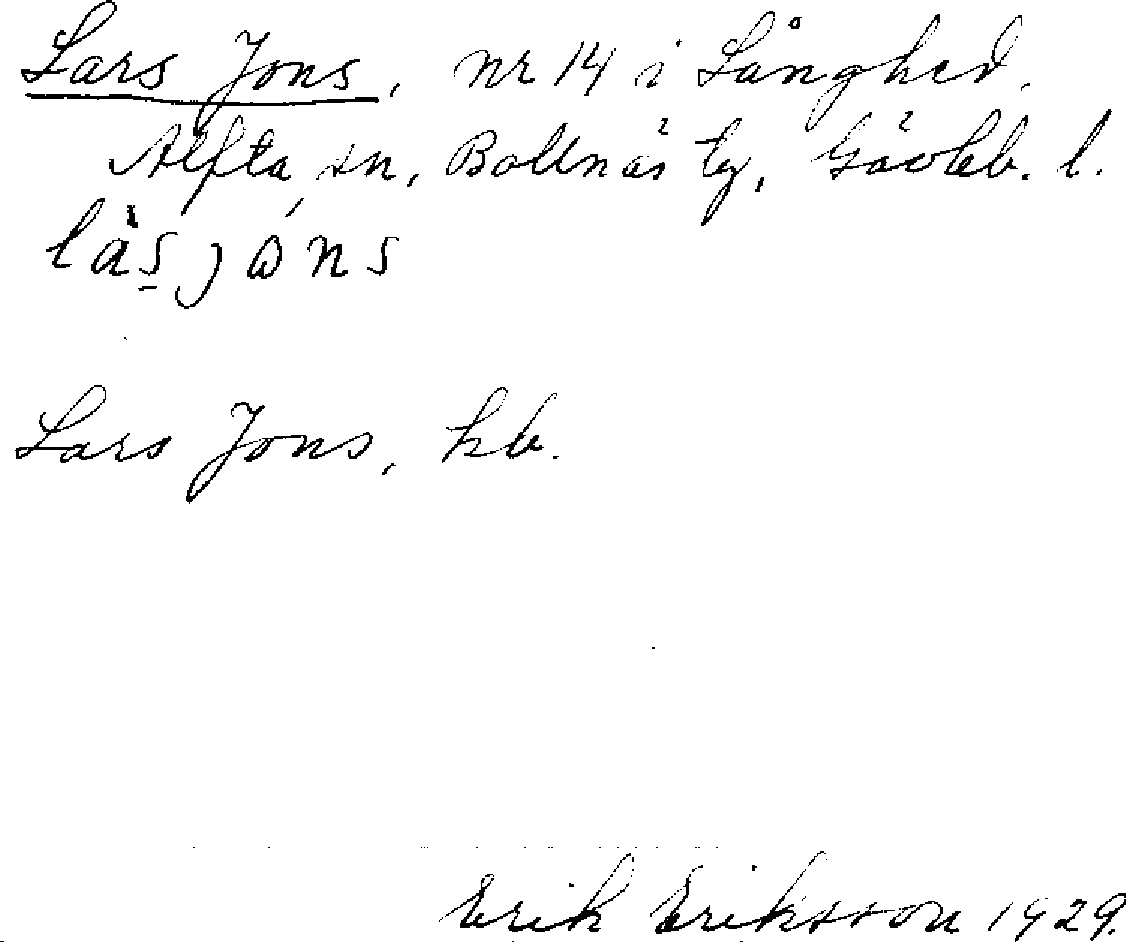 Lars Jons, nr 14 i Långhed,
Alfta sn, Bollnäs tg, Gävleb. l.
làs̱ jɷ́ns
Lars Jons, kb.
Erik Eriksson 1929.